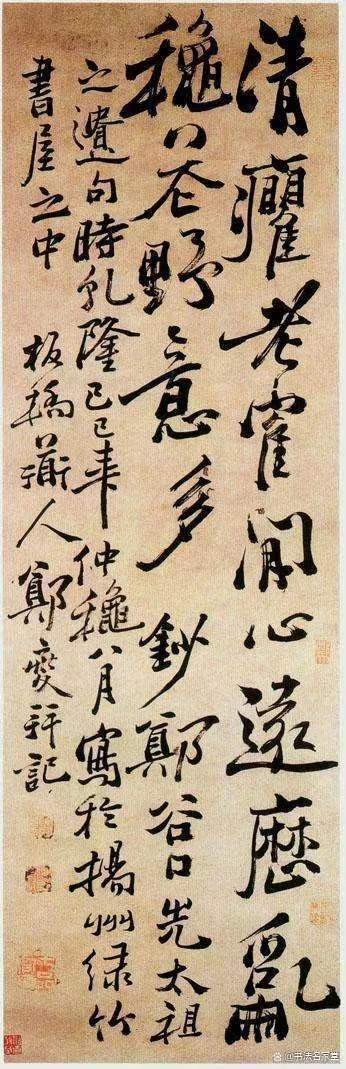 清癯老隺閒心遠歷亂
龝花野意多 鈔鄭谷口先太祖
之遺句時乾隆己巳年仲龝八月寫於揚州綠竹
書屋之中 板橋衜人鄭燮拜記